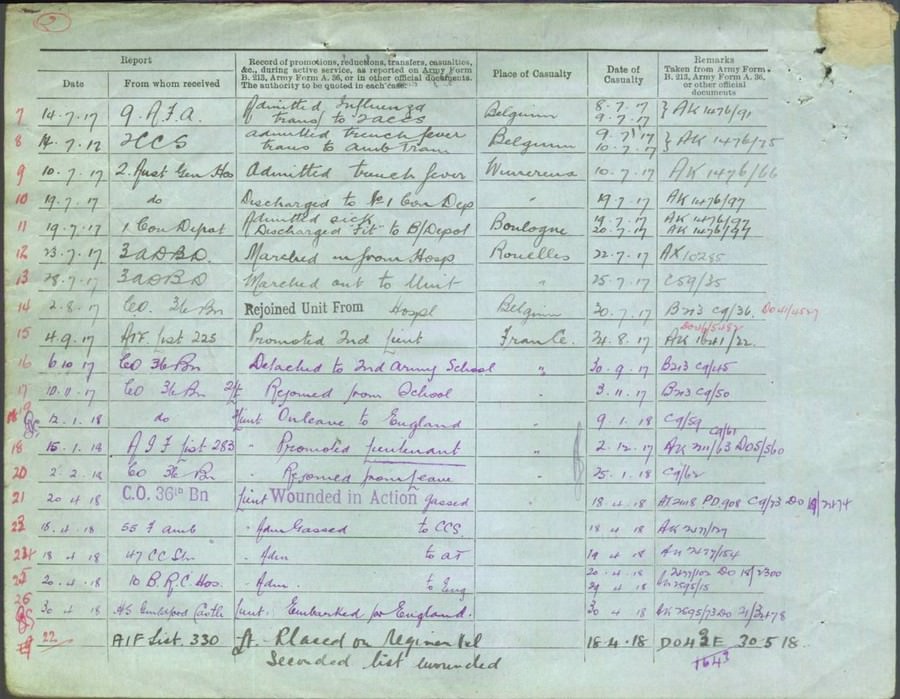 2
Report
Record of promotions, reductions, transfers, casualties, &c., during active service, as reported on Army Form B. 213, Army Form A. 36, or in other official documents. The authority to be quoted in each case.
Place of Casualty
Date of Casualty
Remarks Taken from Army Form B. 213, Army Form A. 36, or other official documents
Date From whom received
7 14.7.17 9. A.F.A. Admitted Influenza Belgium 8.7.17 } AK 1476/91
transf to 2 ACCS 9.7.17
8 14.7.17 2CCS admitted trench fever Belgium 9.7.17 } AK 1476/75
trans to Amb Train 10.7.17
9 10.7.17 2. Aust Gen Hos Admitted trench fever Wimereux 10.7.17 AK 1476/66
10 19.7.17 do Discharged to No 1 Con Dep " 19.7.17 AK 1476/97
11 19.7.17 1 Con Depot Admitted sick Boulogne 19.7.17 AK 1476/97
Discharged "Fit" to B/Depot 20.7.17 AK 1476/97
12 23.7.17 3 ADBD Marched in from Hosp Rouelles 22.7.17 AK 10285
13 28.7.17 3 ADBD Marched out to Unit " 25.7.17 C59/35
14 2.8.17 CO. 36 Bn Rejoined Unit From Hospl Belgium 30.7.17 B213 C9/36. DO41/4527
DO46/5452
15 4.9.17 AIF List 225 Promoted 2nd Lieut France. 24.8.17 AK 1641/22.
16 6.10.17 CO 36 Bn Detached to 2nd Army School " 30.9.17 B213 C9/45
17 10.11.17 CO 36 Bn Rejoined from School " 3.11.17 B213 C9/50
12.1.18 do Lieut On leave to England " 9.1.18 C9/59
C9/61
18 15.1.18 A I F List 283 " Promoted Lieutenant " 2.12.17 AK 211/63 DO5/560
20 2.2.18 CO 36 Bn " Rejoined from Leave " 25.1.18 C9/62
21 20.4.18 C.O. 36th Bn Lieut Wounded in Action gassed " 18.4.18
18.4.18 55 F amb " Adm Gassed to CCS. 18 4 18
18 4 18 47 CC Stn. " Adm to AT 19 4 18
25 20.4.18 10 B.R.C Hos. " Adm. to Eng 20.4.18
26 29 4 18
30 4 18 Lieut. Embarked for England. 30 4 18
22 AIF List. 330 Lt. Placed on Regimental 18.4.18 DO43E 30.5.18.
Seconded list wounded 1643